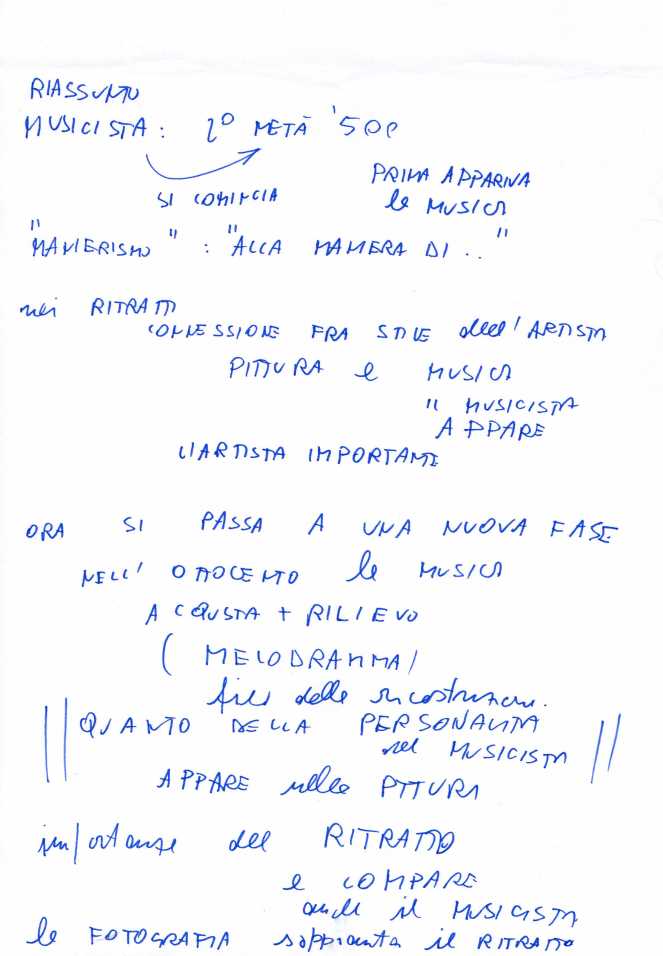 RIASSUNTO
MUSICISTA: 2° METÀ '500
SI COMINCIA
PRIMA APPARIVA
la MUSICA
"MANIERISMO" : "ALLA MANIERA DI .."
nei RITRATTI
CONNESSIONE FRA STILE dell'ARTISTA
PITTURA e MUSICA
IL MUSICISTA
APPARE
L'ARTISTA IMPORTANTE
ORA SI PASSA A UNA NUOVA FASE
NELL' OTTOCENTO la MUSICA
ACQUSTA + RILIEVO
( MELODRAMMA /
della ricostruzione.
QUANTO DELLA PERSONALITA
del MUSICISTA
APPARE nella PITTURA
importanza del RITRATTO
e COMPARE
anche il MUSICISTA
la FOTOGRAFIA soppianta il RITRATTO